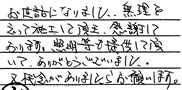 お世話になりました。無理を
言って施工して頂き、感謝して
おります。照明等も提供して頂
いて、ありがとうございました。
又機会がありましたらお願います。